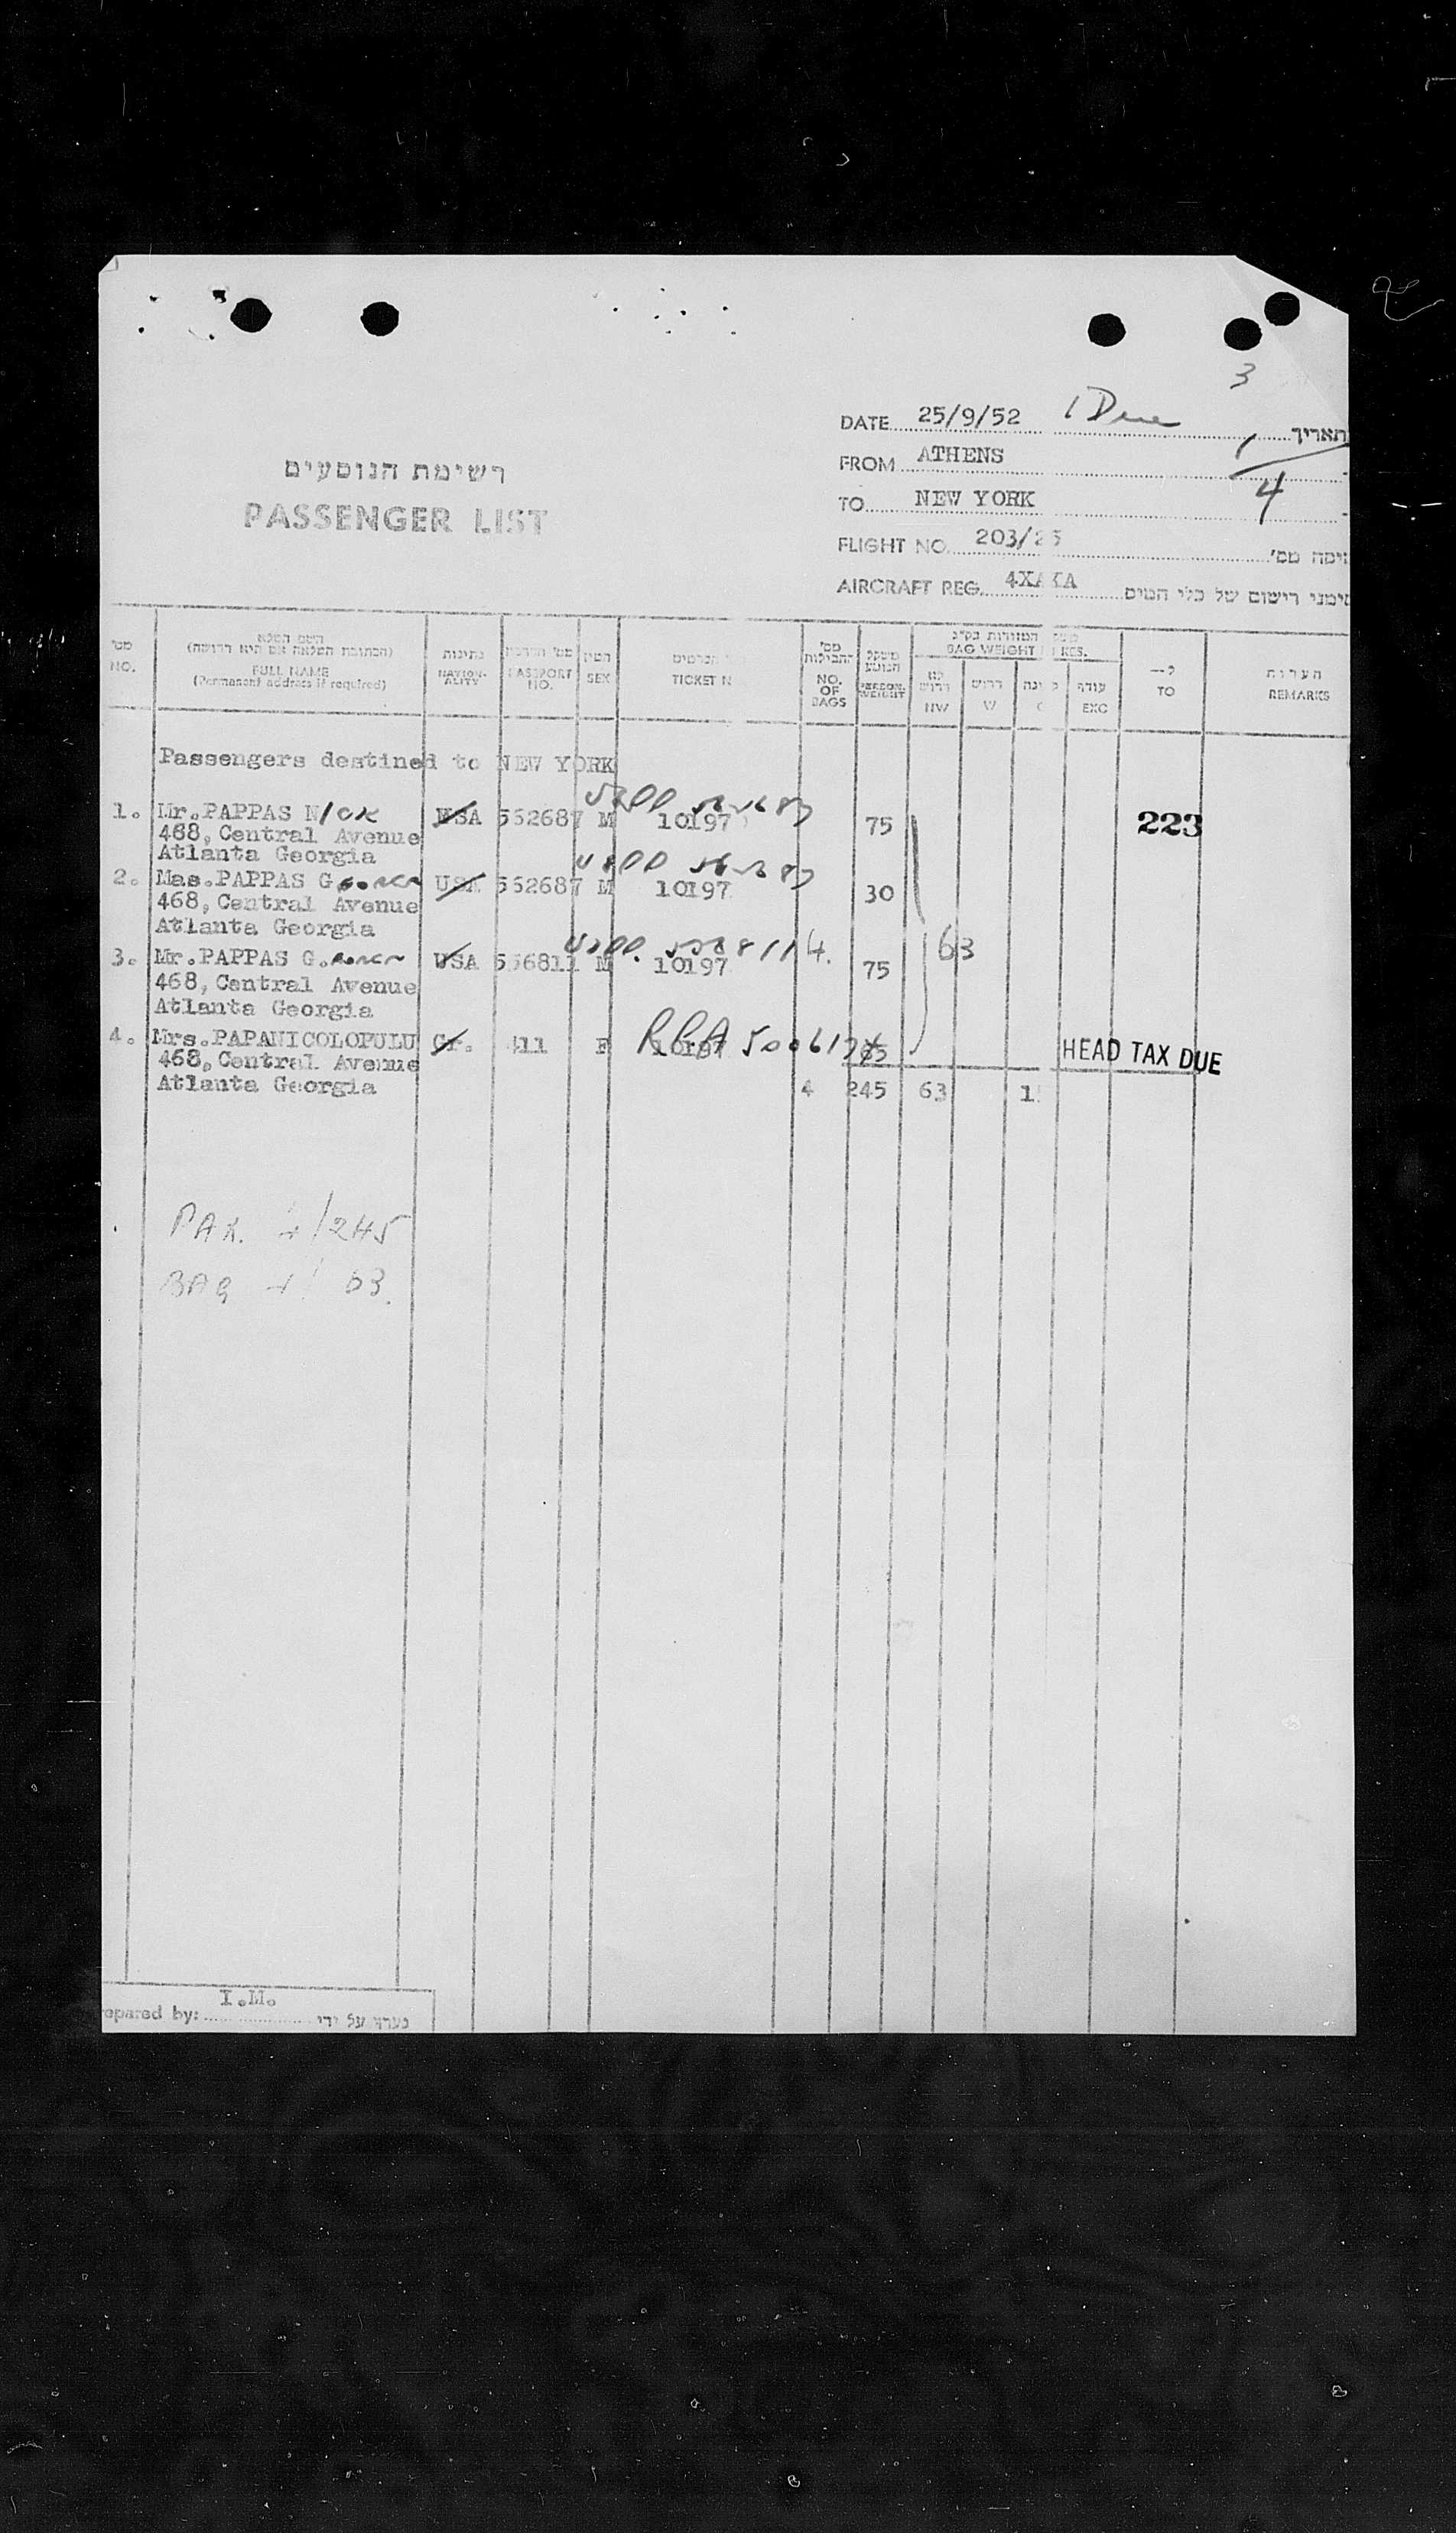 3
DATE 25/9/52 1 Due תאריך
FROM ATHENS 1
TO NEW YORK 4
FLIGHT NO. 203/25 טיסה מס'
AIRCRAFT REG. 4XAKA סימני רישום של כלי הטיס
רשימת הנוסעים
PASSENGER LIST
מס' NO.
השם המלא
(הכתובת המלאה אם היא דרושה)
FULL NAME
(Permanent address if required)
נתינות NATION-ALITY
PASSPORT NO.
המין SEX
TICKET N
מס' החבילות NO. OF BAGS
משקל הנוסע PERSON. WEIGHT
BAG WEIGHT KGS.
לא דרוש NW
דרוש W
עודף EXC
ל— TO
הערות REMARKS
Passengers destined to NEW YORK
1. Mr.PAPPAS NICK USA 552687 M 10197 75 223
468, Central Avenue
Atlanta Georgia
2. Mas.PAPPAS G USA 552687 M 10197 30
468, Central Avenue
Atlanta Georgia
63
3. Mr.PAPPAS G. USA 556811 M 10197 75
468, Central Avenue
Atlanta Georgia
4. Mrs.PAPANICOLOPULU Gr. 411 F 10197 65 HEAD TAX DUE
468, Central Avenue
Atlanta Georgia 4 245 63
PAX. 4/245
BAG 4/ 63.
I.M.
epared by: נערך על ידי